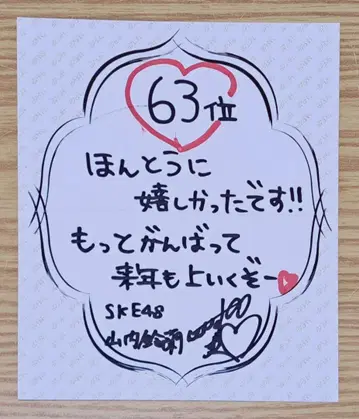 63位
ほんとうに
嬉しかったです!!
もっとがんばって
来年も上いくぞー
SKE48
山内鈴蘭